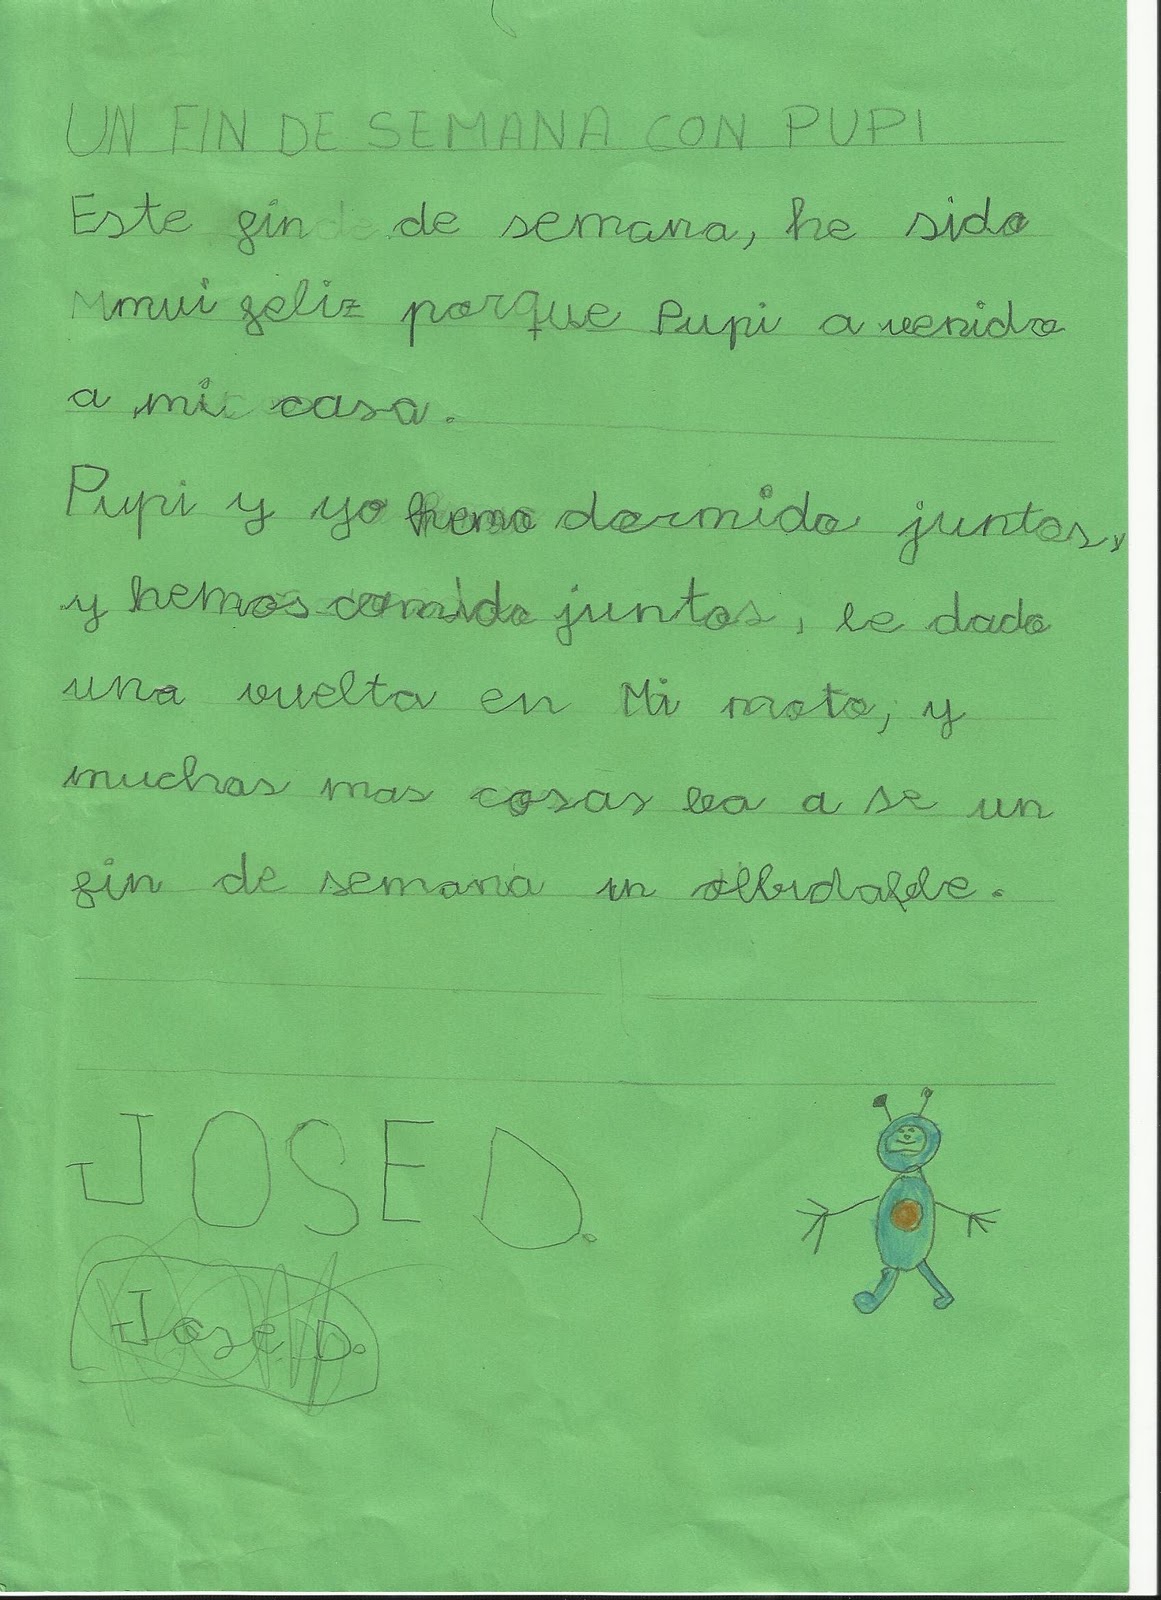 UN FIN DE SEMANA CON PUPI
Este fin de semana, he sido
mui feliz porque Pupi a venido
a mi casa.
Pupi y yo hemo dormido juntos,
y hemos comido juntos, le dado
una vuelta en Mi moto, y
muchas mas cosas a se un
fin de semana in olbidable.
JOSE D.
Jose D.